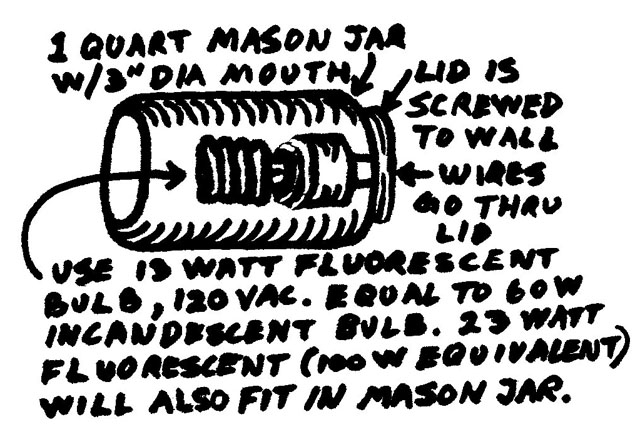 1 QUART MASON JAR
W/3" DIA MOUTH
LID IS
SCREWED
TO WALL
WIRES
GO THRU
LID
USE 13 WATT FLUORESCENT
BULB, 120 VAC. EQUAL TO 60W
INCANDESCENT BULB. 23 WATT
FLUORESCENT (100W EQUIVALENT)
WILL ALSO FIT IN MASON JAR.